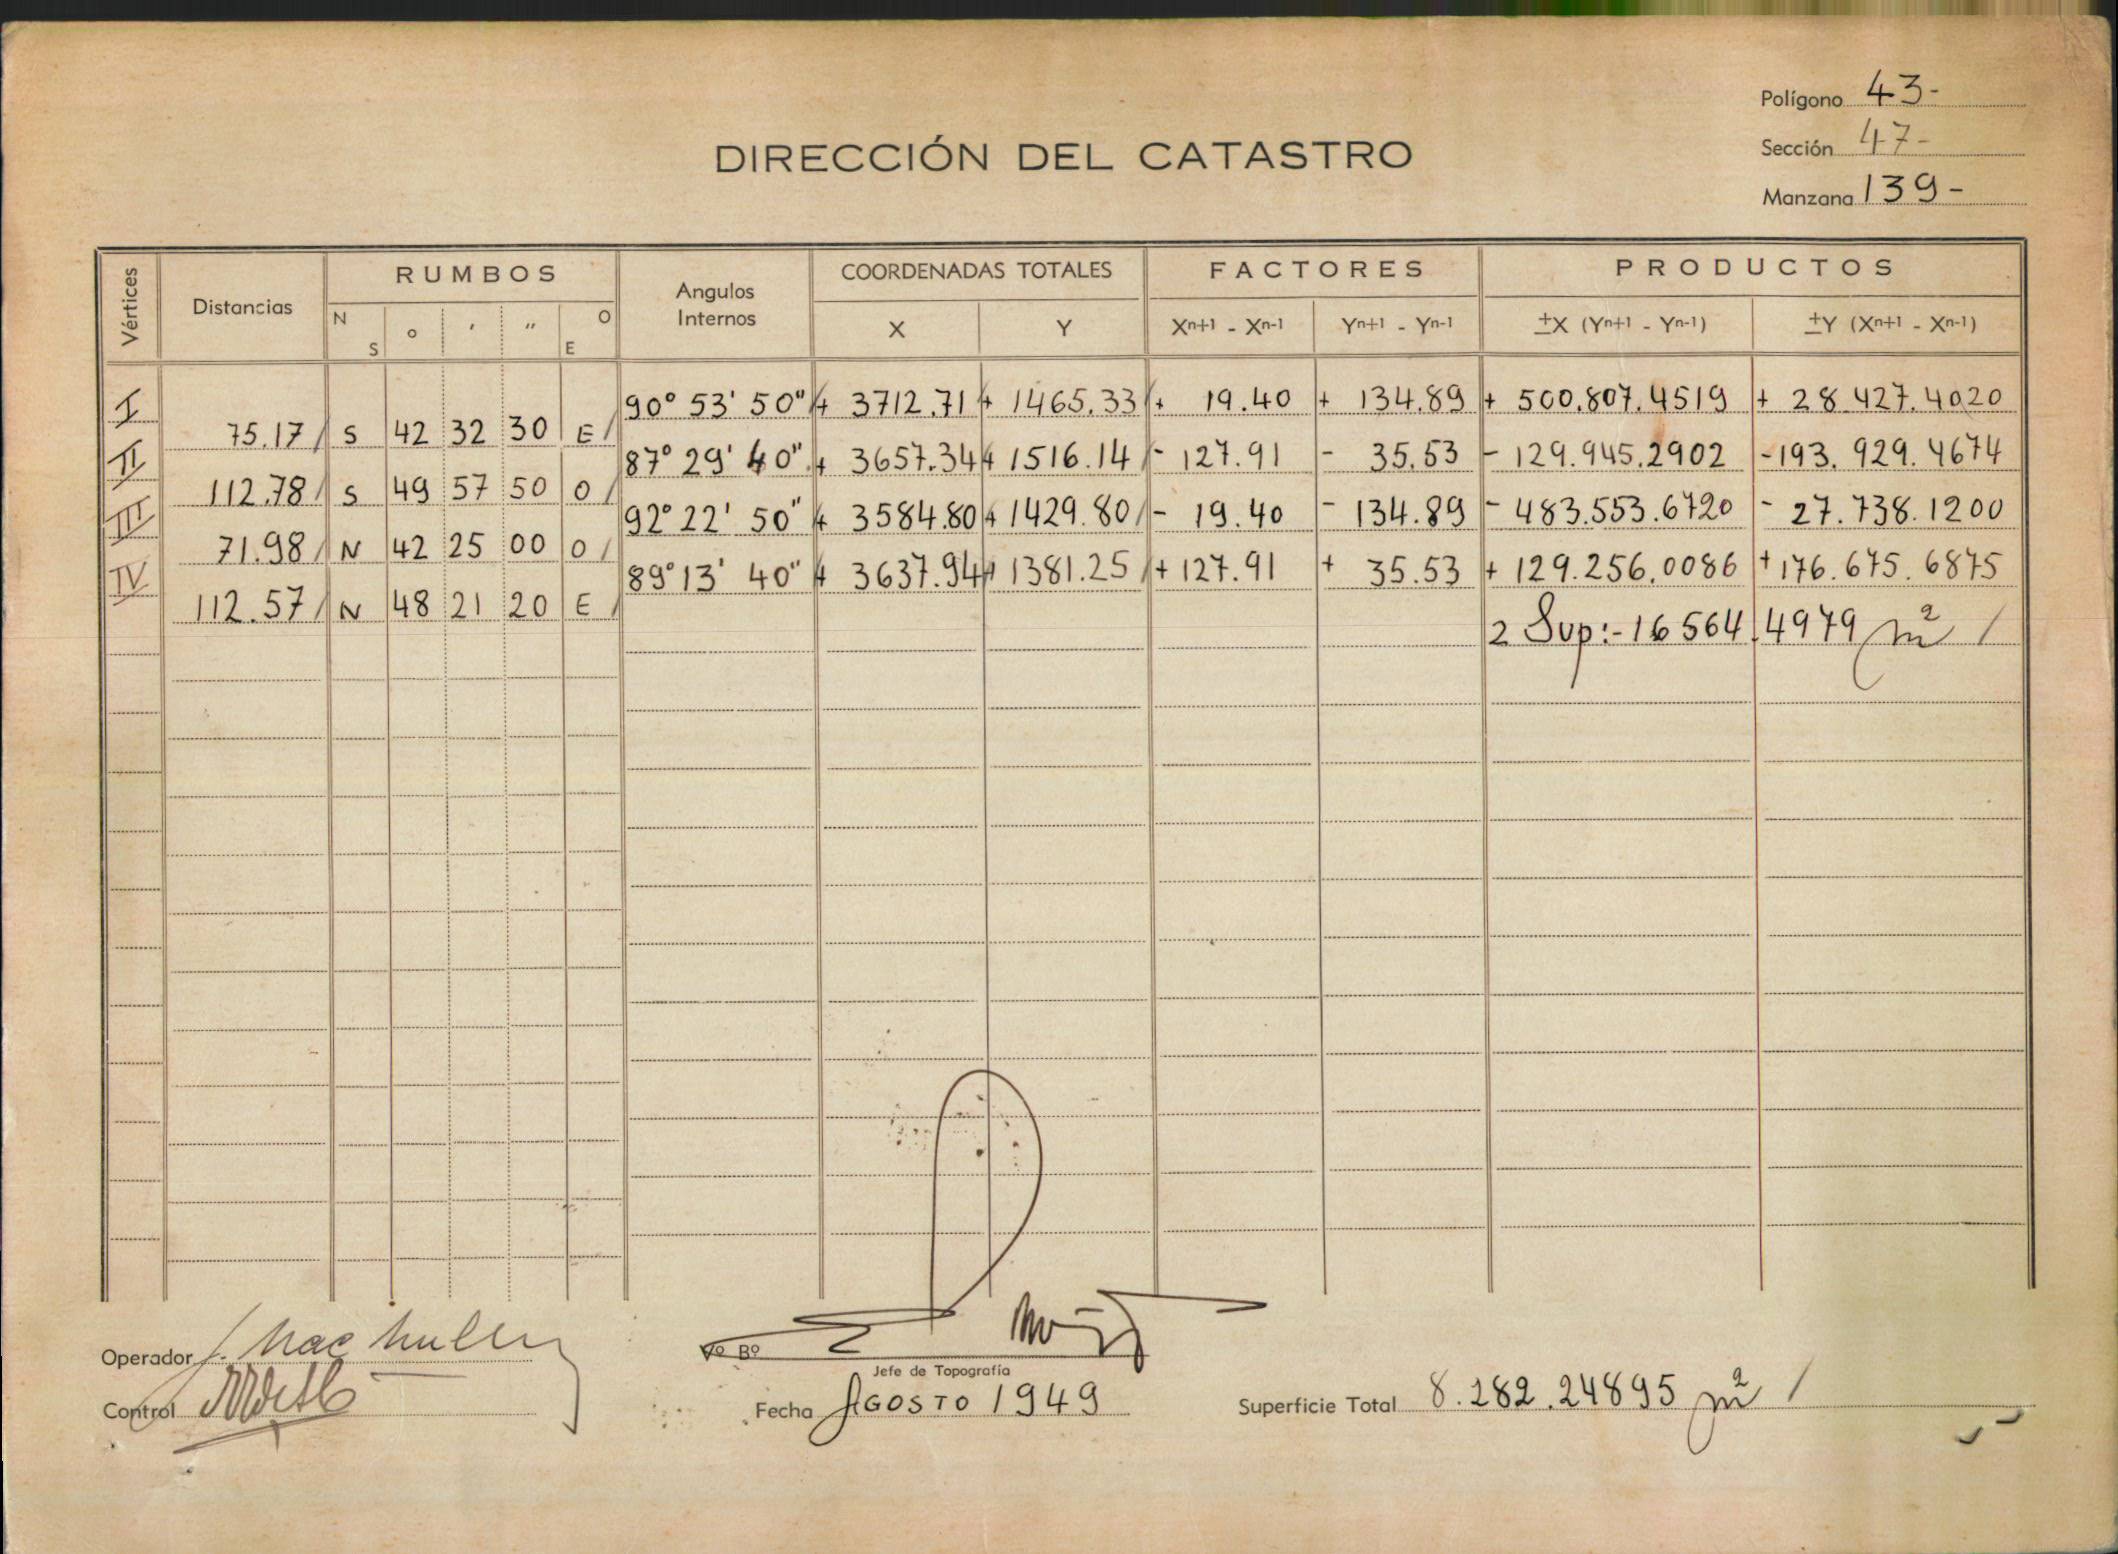 Polígono 43-
Sección 47-
Manzana 139-
DIRECCIÓN DEL CATASTRO
Vértices Distancias RUMBOS Angulos Internos COORDENADAS TOTALES FACTORES PRODUCTOS
N S ° ' " O E X Y Xn+1 - Xn-1 Yn+1 - Yn-1 ±X (Yn+1 - Yn-1) ±Y (Xn+1 - Xn-1)
I 90° 53' 50" + 3712.71 + 1465.33 + 19.40 + 134.89 + 500.807.4519 + 28.427.4020
75.17 S 42 32 30 E
II 87° 29' 40" + 3657.34 + 1516.14 - 127.91 - 35.53 - 129.945.2902 - 193.929.4674
112.78 S 49 57 50 O
III 92° 22' 50" + 3584.80 + 1429.80 - 19.40 - 134.89 - 483.553.6720 - 27.738.1200
71.98 N 42 25 00 O
IV 89° 13' 40" + 3637.94 + 1381.25 + 127.91 + 35.53 + 129.256.0086 + 176.675.6875
112.57 N 48 21 20 E
2 Sup:- 16564.4979 m²
Operador J. Mac
Vº Bº
Jefe de Topografía
Control
Fecha AGOSTO 1949
Superficie Total 8.282.24895 m²